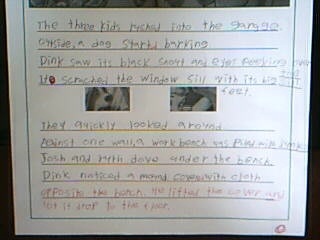 The three kids rushed into the garage.
Outside, a dog startd barking
Dink saw its black snout and eyes peeking over
Ite scrached the window sill with its big
feet.
They quickly looked around
Against one wall, a work bench was filed with
Josh and Ruth dove under the bench.
Dink noticed a mound coverd with cloth
opposite the bench. He lifted the cover and
let it drop to the floor.